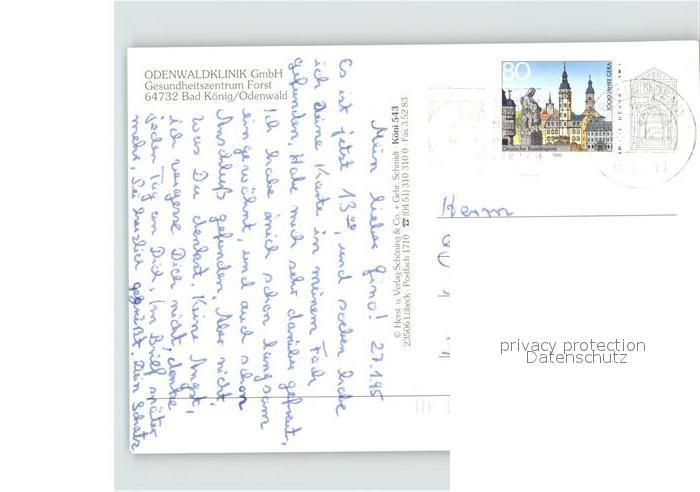 ODENWALDKLINIK GmbH
Gesundheitszentrum Forst
64732 Bad König/Odenwald
Mein lieber Gino! 27.1.95
Es ist jetzt 13 00, und soeben habe
ich Deine Karte in meinem Fach
gefunden. Habe mich sehr darüber gefreut,
Ich habe mich schon langsam
eingewöhnt, und auch schon
Anschluß gefunden. Aber nicht,
was Du denkst. Keine Angst,
ich vergesse Dich nicht, denke
jeden Tag an Dich. Im Brief später
mehr, Sei herzlich gegrüßt. Dein Schatz
© Herst. u. Verlag Schöning & Co. + Gebr. Schmidt Köni 543
23506 Lübeck · Postfach 1710 ☎ (04 51) 310 310 0 · Fax 3 52 83
80
1000 JAHRE GERA
Deutsche Bundespost
1995
Herrn
privacy protection
Datenschutz